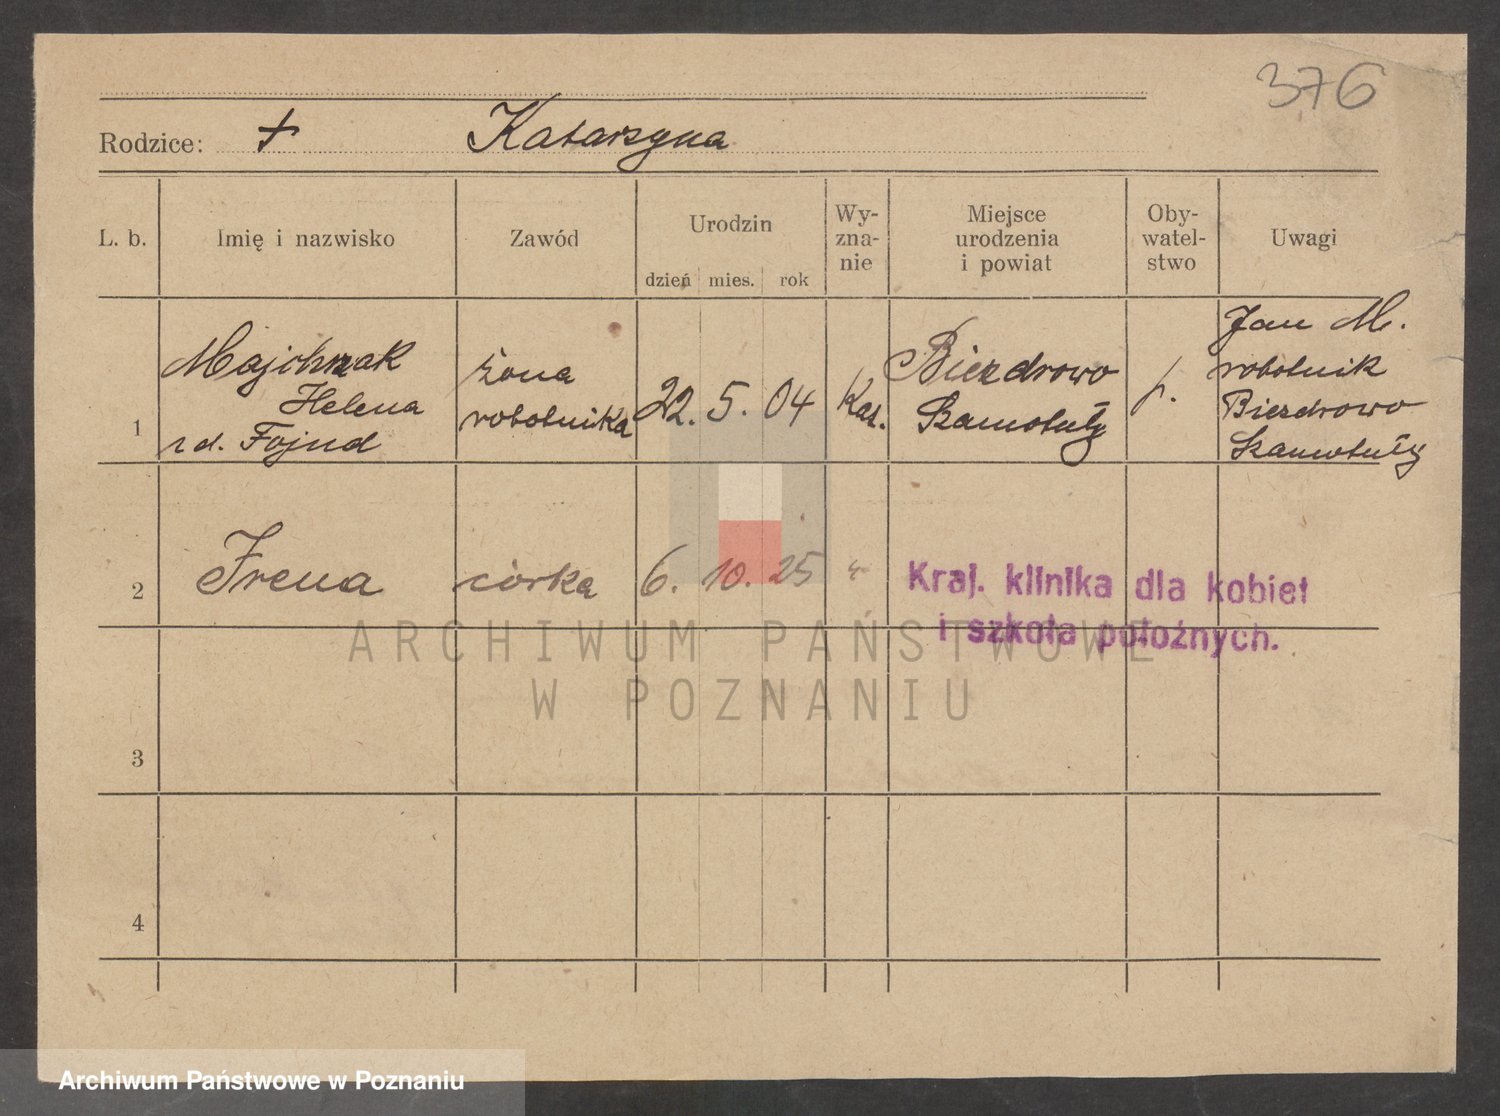 376
Rodzice: + Katarzyna
L. b. Imię i nazwisko Zawód Urodzin Wy-zna-nie Miejsce urodzenia i powiat Oby-watel-stwo Uwagi
dzień mies. rok
1 Majchrzak Helena rd. Fojud żona robotnika 22. 5. 04 Kat. Biezdrowo Szamotuły p. Jan M. robotnik Biezdrowo Szamotuły
2 Irena córka 6. 10. 25
Kraj. klinika dla kobiet
i szkoła położnych.
ARCHIWUM PAŃSTWOWE
W POZNANIU
3
4
Archiwum Państwowe w Poznaniu